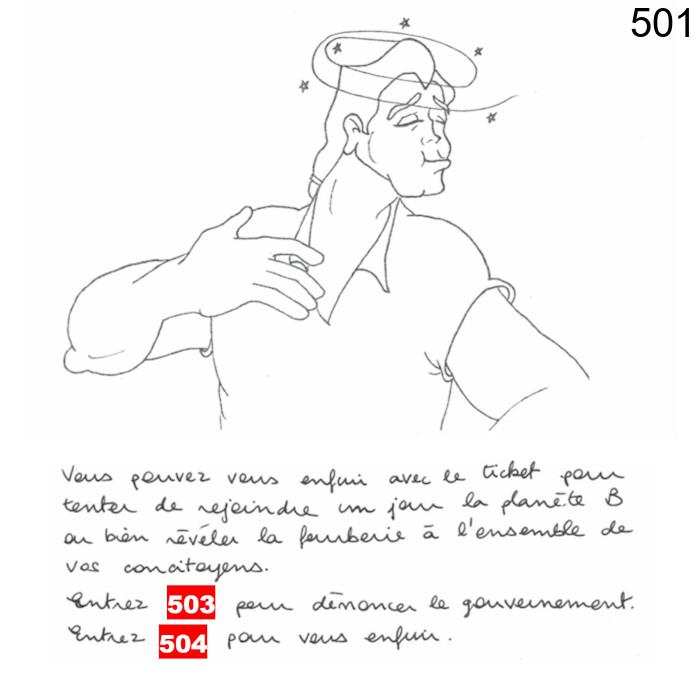 501
Vous pouvez vous enfuir avec le ticket pour
tenter de rejoindre un jour la planète B
ou bien révéler la fourberie à l'ensemble de
vos concitoyens.
Entrez 503 pour dénoncer le gouvernement.
Entrez 504 pour vous enfuir.